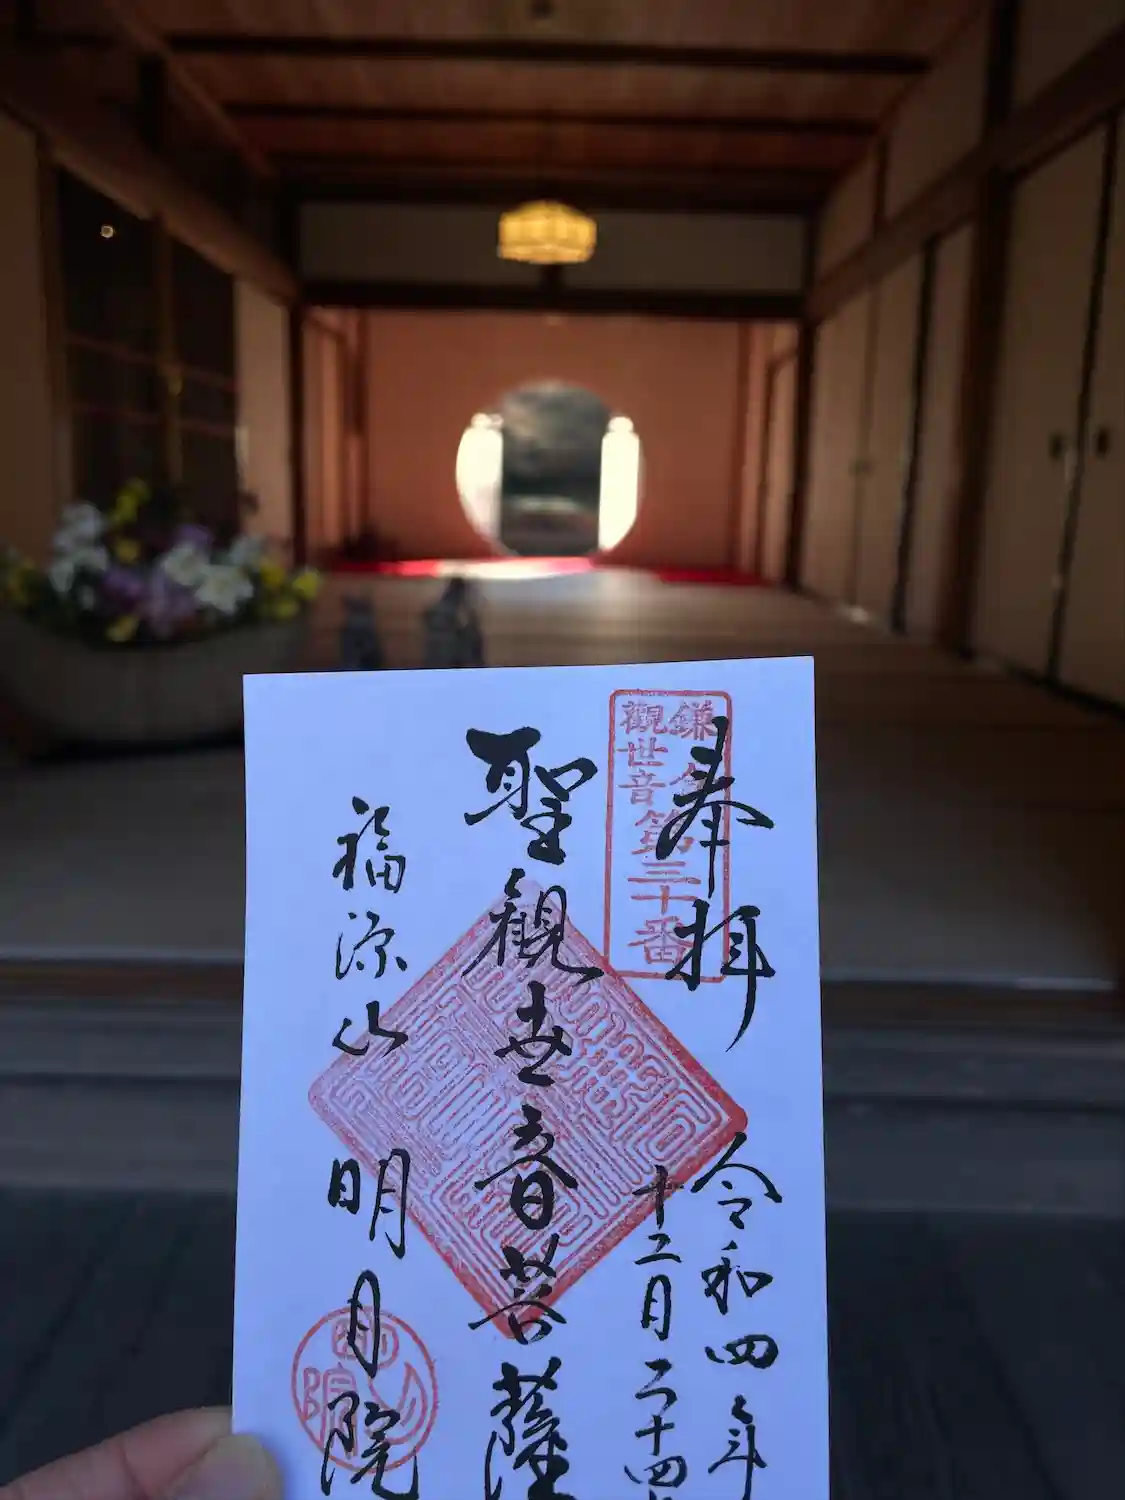 奉拝
鎌倉
觀世音
第三十番
令和四年
十二月二十四
聖観世音菩薩
福源山
明月院